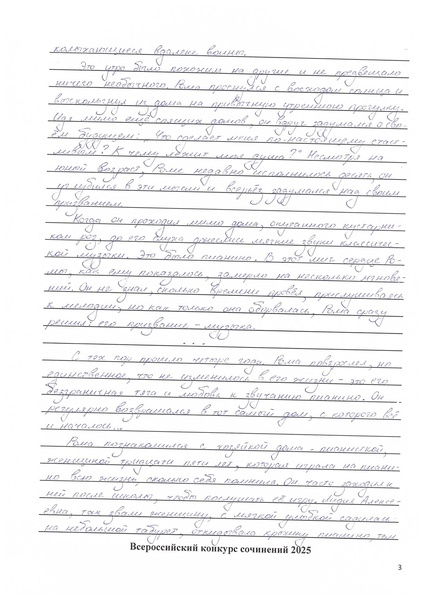 колыхающиеся вдалеке волны.
Это утро было похожим на другие и не предвещало
ничего необычного. Рома проснулся с восходом солнца и
выскользнул из дома на привычную утреннюю прогулку.
Идя мимо ещё спящих домов, он вдруг задумался о сво-
ём будущем: "Что сделает меня по-настоящему счаст-
ливым? К чему лежит моя душа?" Несмотря на
юный возраст, Роме недавно исполнилось десять, он
углубился в эти мысли и всерьёз задумался над своим
призванием.
Когда он проходил мимо дома, окутанного кустарни-
ком роз, до его слуха донеслись мягкие звуки классичес-
кой музыки. Это было пианино. В этот миг сердце Ро-
мы, как ему показалось, замерло на несколько мгнове-
ний. Он не знал, сколько времени провёл, прислушиваясь
к мелодии, но как только она оборвалась, Рома сразу
решил: его призвание - музыка.
* * *
С тех пор прошло четыре года. Рома повзрослел, но
единственное, что не изменилось в его жизни - это его
безграничная тяга и любовь к звучанию пианино. Он
регулярно возвращался в тот самый дом, с которого всё
и началось...
Рома познакомился с хозяйкой дома - пианисткой,
женщиной тридцати пяти лет, которая играла на пиани-
но всю жизнь, сколько себя помнила. Он часто заходил к
ней после школы, чтобы послушать её игру. Алексе-
евна, так звали женщину, с мягкой улыбкой садилась
на небольшой табурет, откидывала крышку пианино, и
Всероссийский конкурс сочинений 2025
3